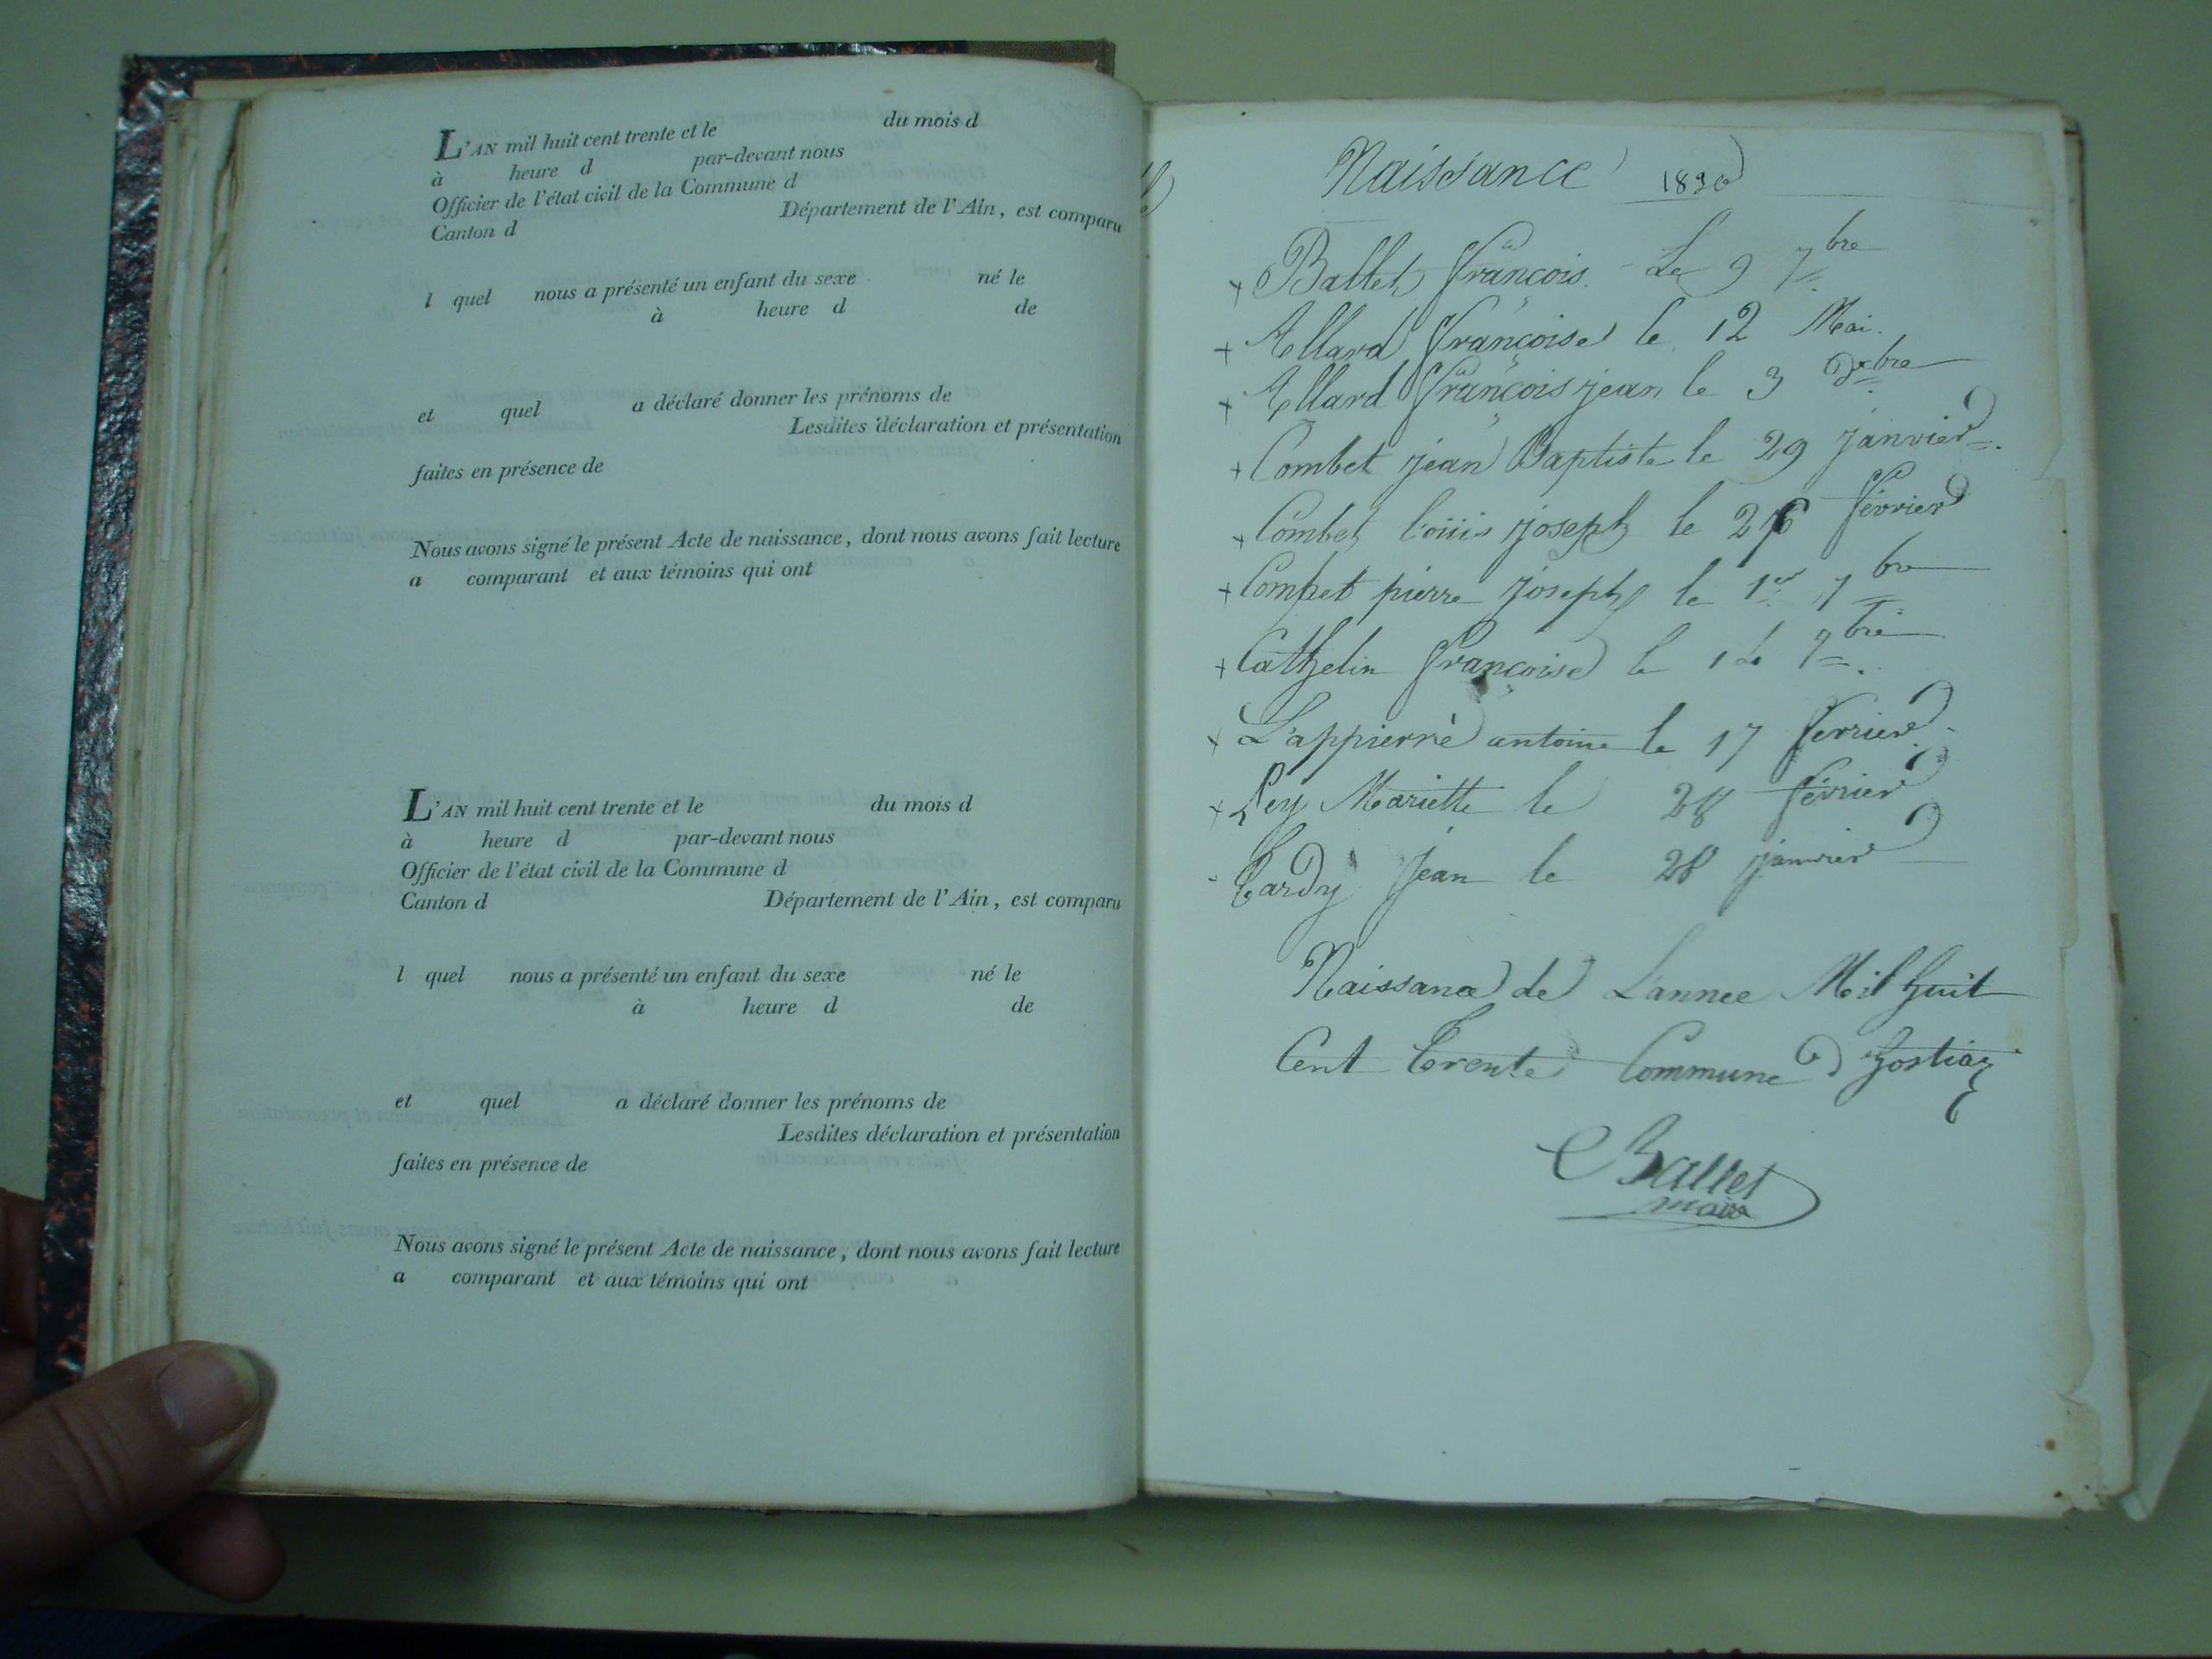 L'AN mil huit cent trente et le du mois d
à heure d par-devant nous
Officier de l'état civil de la Commune d
Canton d Département de l'Ain, est comparu
l quel nous a présenté un enfant du sexe né le
à heure d de
et quel a déclaré donner les prénoms de
Lesdites déclaration et présentation
faites en présence de
Nous avons signé le présent Acte de naissance, dont nous avons fait lecture
a comparant et aux témoins qui ont
L'AN mil huit cent trente et le du mois d
à heure d par-devant nous
Officier de l'état civil de la Commune d
Canton d Département de l'Ain, est comparu
l quel nous a présenté un enfant du sexe né le
à heure d de
et quel a déclaré donner les prénoms de
Lesdites déclaration et présentation
faites en présence de
Nous avons signé le présent Acte de naissance, dont nous avons fait lecture
a comparant et aux témoins qui ont
Naissance 1830
+ Ballet françois. Le 9 7bre
+ Allard françoise le 12 Mai.
+ Allard françois jean le 3
+ Combet jean Baptiste le 29 janvier
+ Combet louis joseph le février
+ Combet pierre joseph le 1er 7bre
+ Cathelin françoise le 7bre
+ Lappierre antoine le 17 fevrier
+ Mariette le 28 février
Tardy Jean le 28 janvier
Naissance de Lannee Mil huit
Cent trente Commune d hostiaz
Ballet
maire